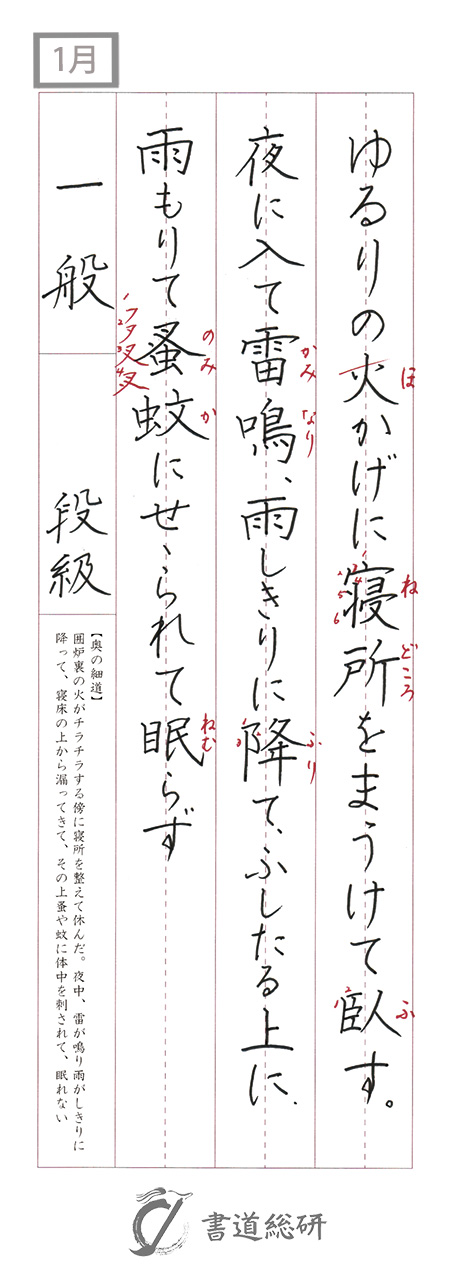 1月
ゆるりの火かげに寝所をまうけて臥す。
ほ
ね
どころ
ふ
夜に入て雷鳴、雨しきりに降て、ふしたる上に、
かみ
なり
ふり
雨もりて蚤蚊にせゝられて眠らず
のみ
か
ねむ
一般
段級
【奥の細道】
囲炉裏の火がチラチラする傍に寝所を整えて休んだ。夜中、雷が鳴り雨がしきりに
降って、寝床の上から漏ってきて、その上蚤や蚊に体中を刺されて、眠れない
書道総研